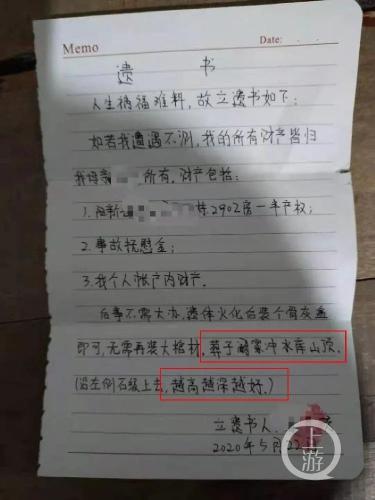 Memo
Date:
遗 书
人生祸福难料，故立遗书如下：
如若我遭遇不测，我的所有财产皆归
我母亲 所有，财产包括：
1. 阳新 栋2902房一半产权；
2. 事故抚慰金；
3. 我个人帐户内财产。
后事不需大办，遗体火化后装个骨灰盒
即可，无需再装大棺材，葬于 家冲水库山顶，
（沿左侧石级上去，越高越深越好。）
立遗书人：
2020年5月22
上游